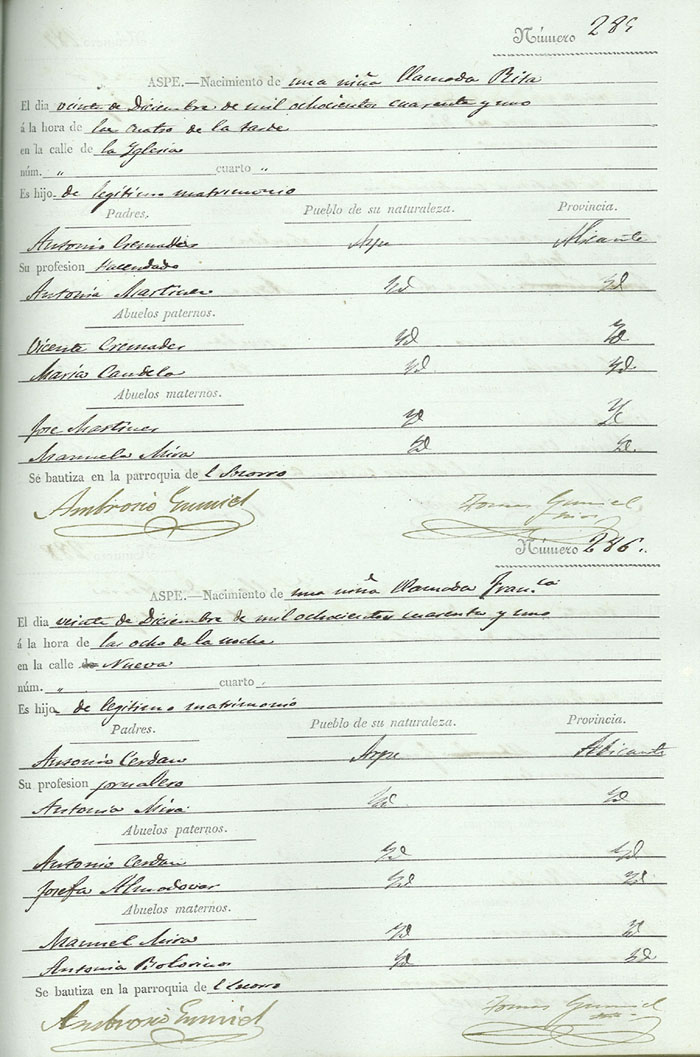 Número 285
ASPE.—Nacimiento de una niña llamada Rita
El dia veinte de Diciembre de mil ochocientos cuarenta y uno
á la hora de las cuatro de la tarde
en la calle de la Yglesia
núm. " cuarto "
Es hijo de legitimo matrimonio
Padres. Pueblo de su naturaleza. Provincia.
Antonio Cremades Aspe Alicante
Su profesion Hacendado
Antonia Martinez Yd Yd
Abuelos paternos.
Vicente Cremades Yd Yd
Maria Candela Yd Yd
Abuelos maternos.
Jose Martinez Yd Yd
Manuela Mira Yd Yd
Se bautiza en la parroquia de l Socorro
Ambrosio Gumiel Tomas Gumiel
Número 286.
ASPE.—Nacimiento de una niña llamada Fran.ca
El dia veinte de Diciembre de mil ochocientos cuarenta y uno
á la hora de las ocho de la noche
en la calle de Nueva
núm. " cuarto
Es hijo de legitimo matrimonio
Padres. Pueblo de su naturaleza. Provincia.
Antonio Cerdan Aspe Alicante
Su profesion jornalero
Antonia Mira Yd Yd
Abuelos paternos.
Antonio Cerdan Yd Yd
Josefa Almodovar Yd Yd
Abuelos maternos.
Manuel Mira Yd Yd
Antonia Yd Yd
Se bautiza en la parroquia de l Socorro
Ambrosio Gumiel Tomas Gumiel